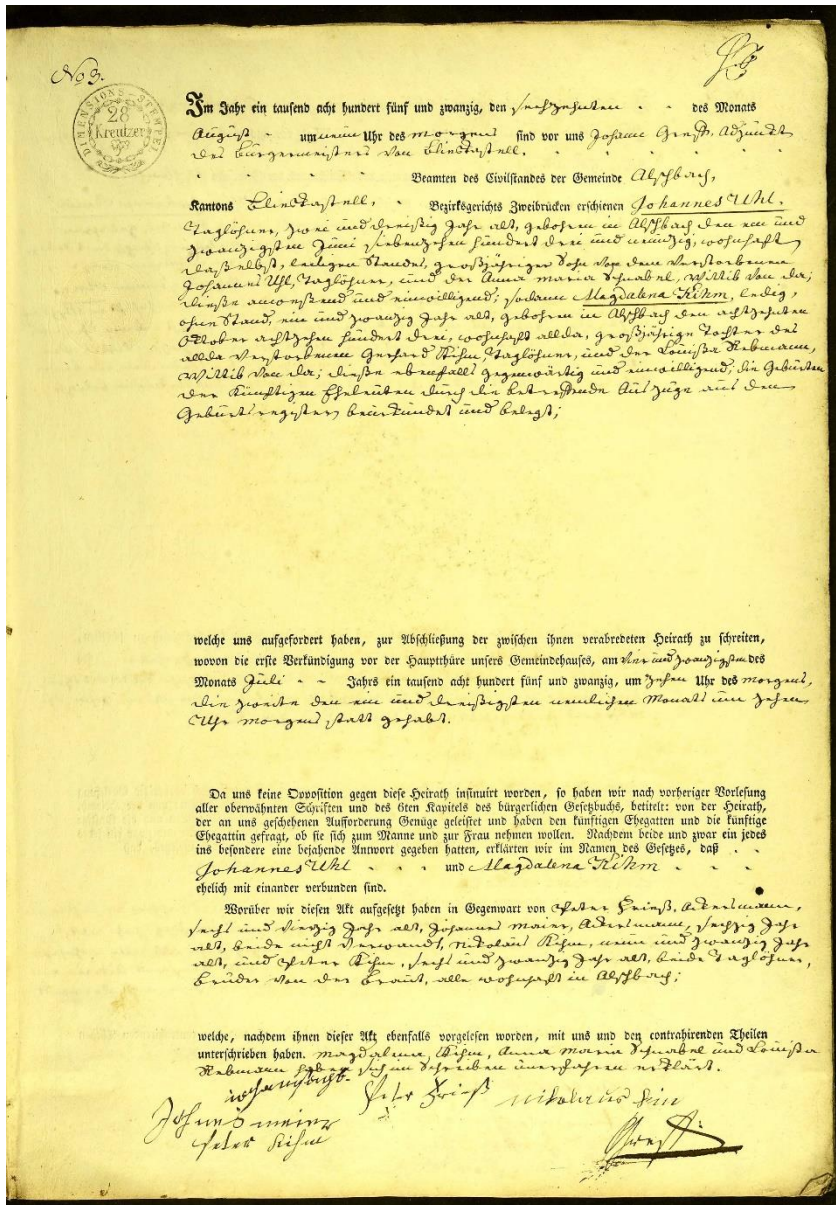 No 3.
DIMENSIONS-STEMPEL
28
Kreutzer
Im Jahr ein tausend acht hundert fünf und zwanzig, den sechzehnten des Monats
August um neun Uhr des morgens sind vor uns Johann Adjunkt
des Bürgermeisters von Bliescastell.
Beamten des Civilstandes der Gemeinde Alschbach,
Kantons Bliescastell, Bezirksgerichts Zweibrücken erschienen Johannes Uhl,
Taglöhner, zwei und dreißig Jahr alt, gebohren in Alschbach den ein und
zwanzigsten Juni siebenzehen hundert drei und neunzig, wohnhaft
daselbst, ledigen Standes, großjähriger Sohn von dem verstorbenen
Johannes Uhl, Taglöhner, und der Anna Maria Schnabel, Wittib von da;
dieße anweßend und einwilligend; sodann Magdalena Kihm, ledig,
ohne Stand, ein und zwanzig Jahr alt, gebohren in Alschbach den achtzehnten
Oktober achtzehen hundert drei, wohnhaft allda, großjährige Tochter des
allda verstorbenen Gerhard Kihm, Taglöhner, und der Louißa Rebmann,
Wittib von da; dieße ebenfalls gegenwärtig und einwilligend; die Geburten
der künftigen Eheleuten durch die betreffende Auszüge aus den
Geburtsregistern beurkundet und belegt;
welche uns aufgefordert haben, zur Abschließung der zwischen ihnen verabredeten Heirath zu schreiten,
wovon die erste Verkündigung vor der Hauptthüre unsers Gemeindehauses, am vier und zwanzigsten des
Monats Juli Jahrs ein tausend acht hundert fünf und zwanzig, um zehen Uhr des morgens,
die zweite den ein und dreißigsten nemlichen Monats um zehen
Uhr morgens statt gehabt.
Da uns keine Opposition gegen diese Heirath insinuirt worden, so haben wir nach vorheriger Vorlesung
aller oberwähnten Schriften und des 6ten Kapitels des bürgerlichen Gesetzbuchs, betitelt: von der Heirath,
der an uns geschehenen Aufforderung Genüge geleistet und haben den künftigen Ehegatten und die künftige
Ehegattin gefragt, ob sie sich zum Manne und zur Frau nehmen wollen. Nachdem beide und zwar ein jedes
ins besondere eine bejahende Antwort gegeben hatten, erklärten wir im Namen des Gesetzes, daß
Johannes Uhl und Magdalena Kihm
ehelich mit einander verbunden sind.
Worüber wir diesen Akt aufgesetzt haben in Gegenwart von Peter Frieß, Ackersmann,
sechs und vierzig Jahr alt, Johannes Maier, Ackersmann, sechzig Jahr
alt, beide nicht verwandt, Nikolaus Kihm, neun und zwanzig Jahr
alt, und Peter Kihm, sechs und zwanzig Jahr alt, beide Taglöhner,
Brüder von der Braut, alle wohnhaft in Alschbach;
welche, nachdem ihnen dieser Akt ebenfalls vorgelesen worden, mit uns und den contrahirenden Theilen
unterschrieben haben. Magdalena Kihm, Anna Maria Schnabel und Louißa
Rebmann haben sich im Schreiben unerfahren erklärt.
Peter Frieß
Johnes meier
Peter Kihm